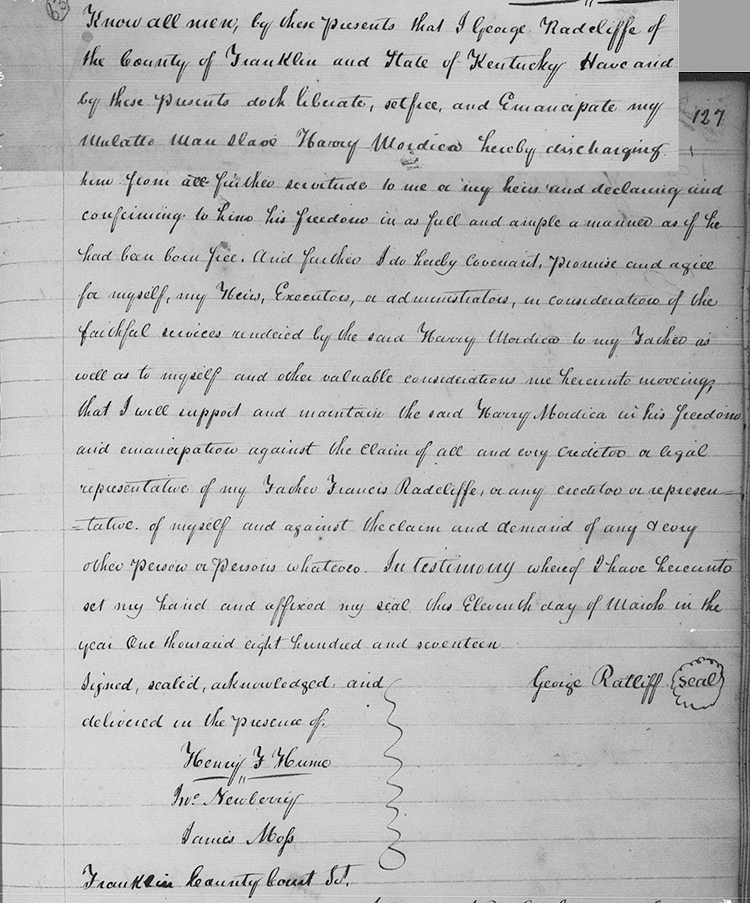 63
Know all men, by these presents that I George Radcliffe of
the County of Franklin and State of Kentucky Have and
by these presents doth liberate, setfree, and Emancipate my
127
Mulatto Man slave Harry Mordica hereby discharging
him from all further servitude to me or my heirs and declaring and
confirming to him his freedom in as full and ample a manner as if he
had been born free. And further I do hereby Covenant, Promise and agree
for myself, my Heirs, Executors, or administrators, in consideration of the
faithful services rendered by the said Harry Mordica to my Father as
well as to myself and other valuable considerations me hereunto mooving,
that I will support and maintain the said Harry Mordica in his freedom
and emancipation against the Claim of all and evry Creditor or legal
representative of my Father Francis Radcliffe, or any creditor or represen=
=tative. of myself and against the claim and demand of any & evry
other Person or Persons whatever. In testimony whereof I have hereunto
set my hand and affixed my seal this Eleventh day of March in the
year One thousand eight hundred and seventeen
Signed, sealed, acknowledged, and George Ratliff seal
delivered in the presence of.
Henry F Hume
Jno. Newberry
James Moss
Franklin County Court Sct.